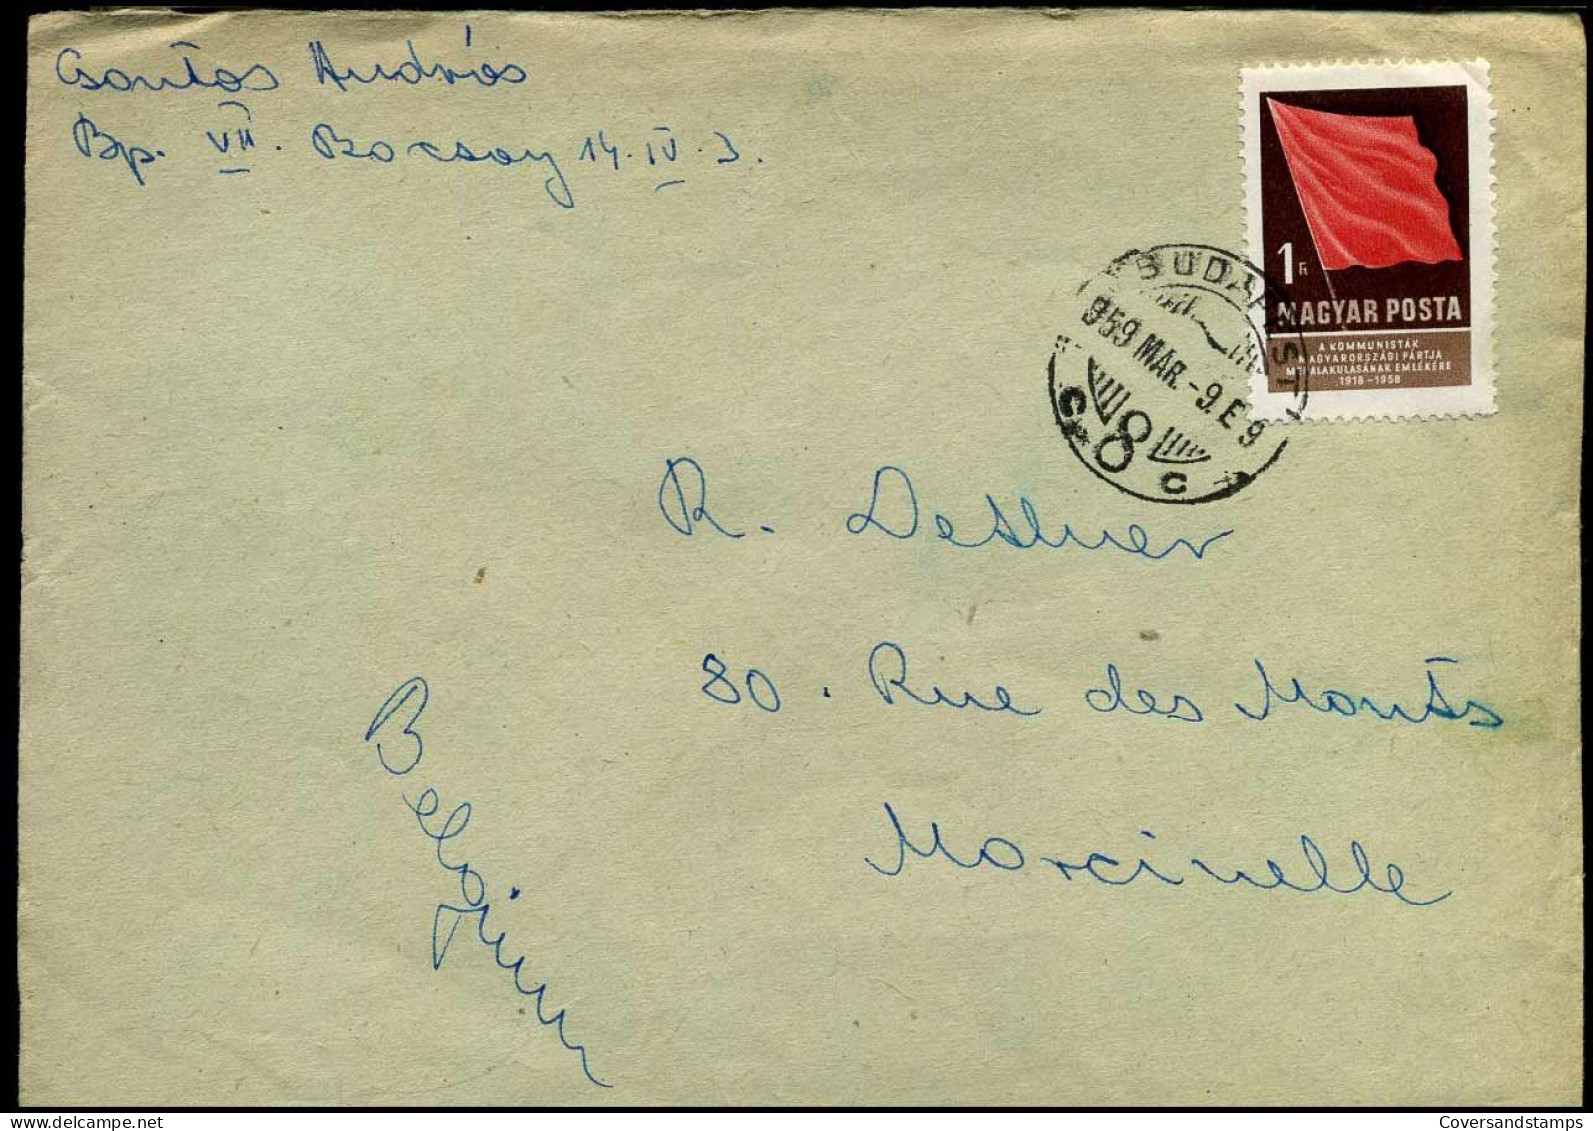 Csontos András
Bp. VII. Bocsay 14. IV. 3.
1 Ft
MAGYAR POSTA
A KOMMUNISTÁK
MAGYARORSZÁGI PÁRTJA
MEGALAKULÁSÁNAK EMLÉKÉRE
1918-1958
BUDAPEST
959 MAR.-9. E 9
C 8 C
R.
80. Rue des Monts
Marcinelle
Belgium
Coversandstamps